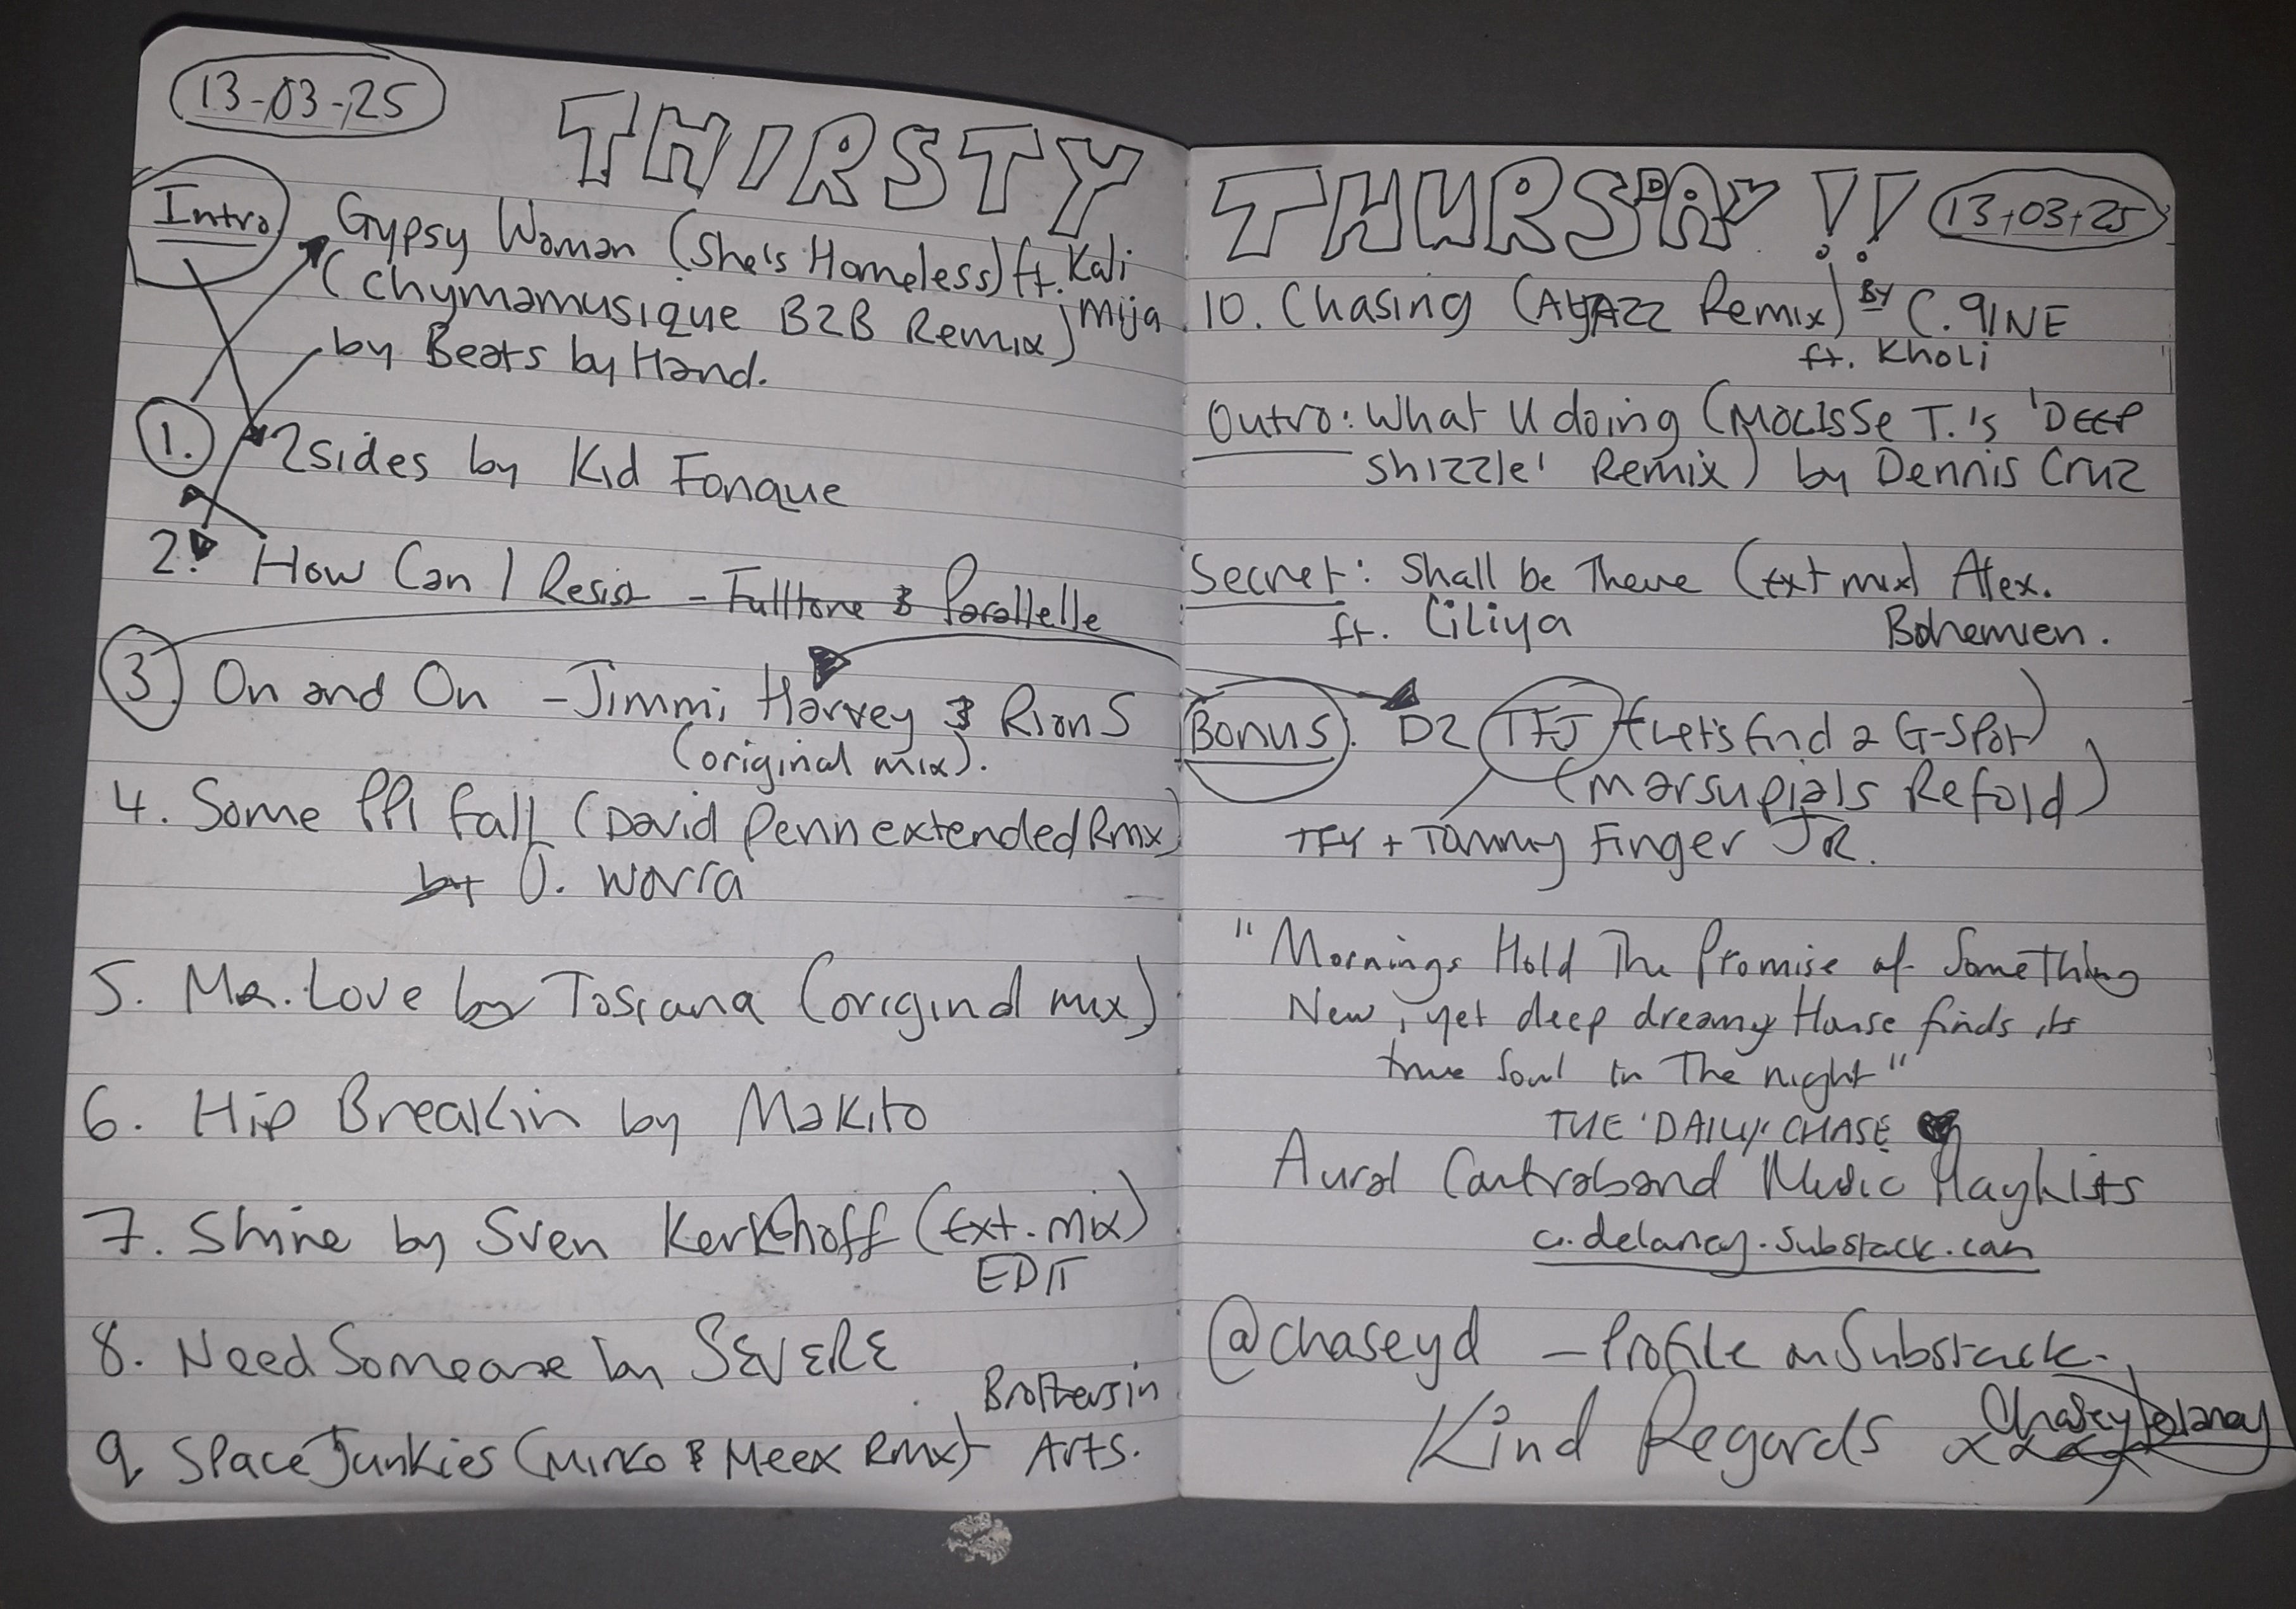 13-03-25
THIRSTY
Intro
Gypsy Woman (She's Homeless) ft. Kali
Mija
(Chymamusique B2B Remix)
by Beats by Hand.
1.
2sides by Kid Fonque
2. How Can I Resist - Fulltone & Parallelle
3. On and On - Jimmi Harvey & Rion S
(original mix).
4. Some ppl fall (David Penn extended Rmx)
by J. Worra
5. Mr. Love by Toscana (original mix)
6. Hip Breakin by Makito
7. Shine by Sven Kerkhoff (Ext. Mix)
EDIT
8. Need Someone by SEVERE
9. Space Junkies (Mirko & Meex Rmx)
Brothers in
Arts.
THURSDAY !!
13-03-25
10. Chasing (AYAZZ Remix) BY C. 9INE
ft. Kholi
Outro: What U doing (Mousse T.'s 'DEEP
Shizzle' Remix) by Dennis Cruz
Secret: Shall be There (Ext mix) Alex.
ft. Liliya Bohemien.
Bonus: D2 TFJ (Let's find a G-Spot)
(Marsupials Refold)
TFY + Tommy Finger JR.
"Mornings Hold The Promise of Something
New, yet deep dreamy House finds its
true Soul in The night"
THE 'DAILY' CHASE
Aural Contraband Music Playlists
c.delaney.substack.com
@chaseyd - Profile on Substack.
Kind Regards xxx
Chasey Delaney